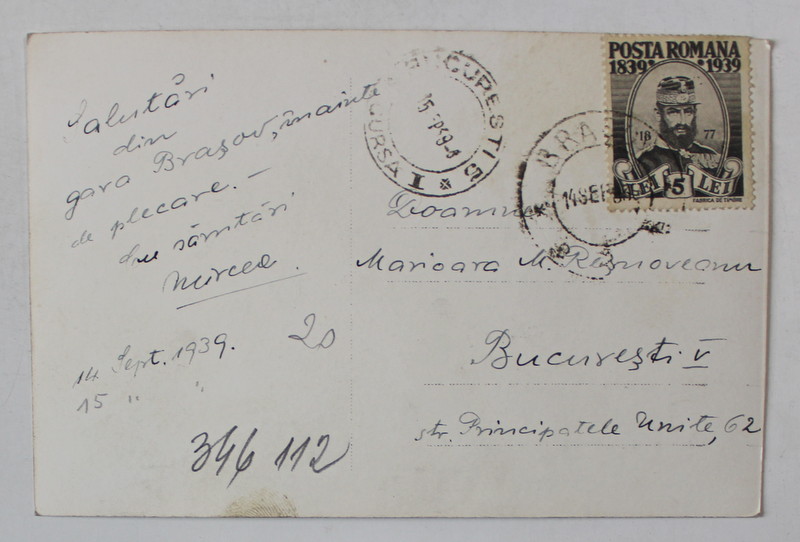 Salutări
din
gara Brașov, înainte
de plecare. —
Cu sărutări
Mircea.
14 Sept. 1939.
15 " "
20
346 112
BUCUREȘTI 5
CURSA I
BRAȘ
14 SEP
POSTA ROMANA
1839 1939
18 77
LEI 5 LEI
FABRICA DE TIMBRE
Doamnei
Marioara M. Râșnoveanu
București V
str. Principatele Unite, 62